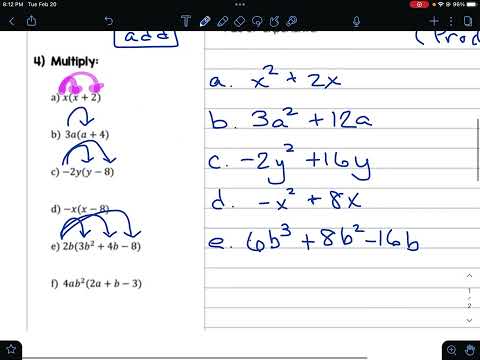 8:12 PM Tue Feb 20
96%
add
(Prod
4) Multiply:
a) x(x + 2)
b) 3a(a + 4)
c) −2y(y − 8)
d) −x(x − 8)
e) 2b(3b² + 4b − 8)
f) 4ab²(2a + b − 3)
a. x² + 2x
b. 3a² + 12a
c. -2y² + 16y
d. -x² + 8x
e. 6b³ + 8b² - 16b
1
2